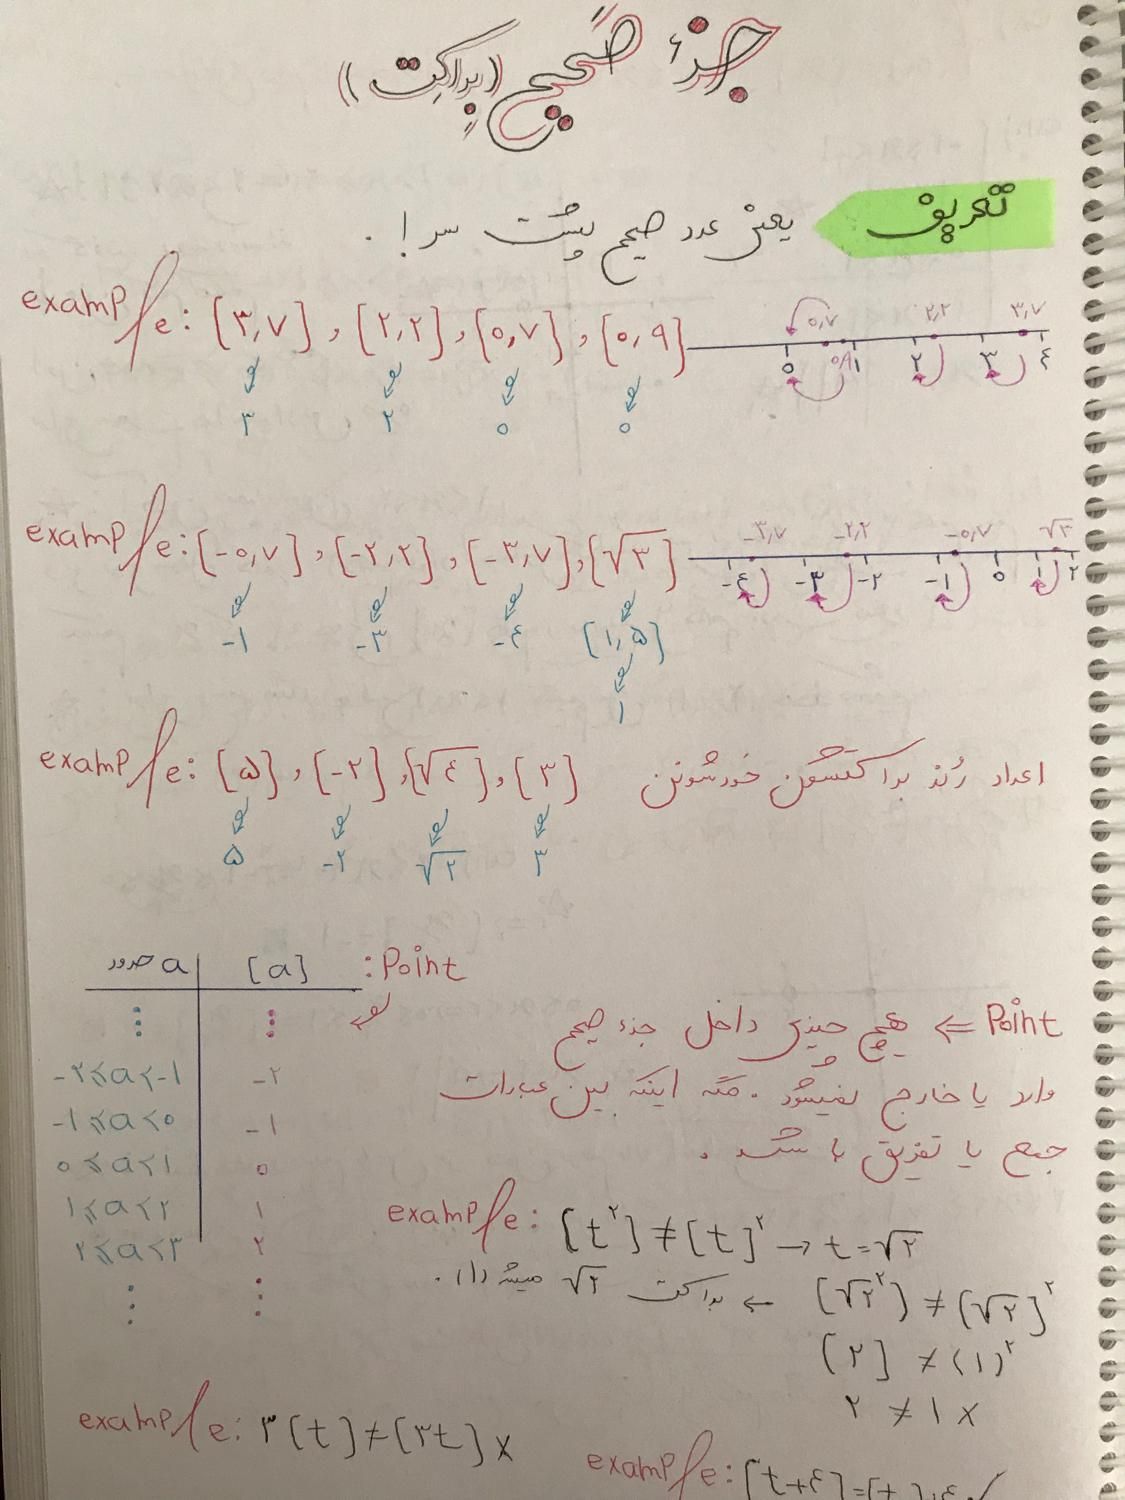 جزء صحیح (براکت)
تعریف
یعنی عدد صحیح پشت سر!.
example: [۳,۷] , [۲,۲] , [۰,۷] , [۰,۹]
۰,۷ ۲,۲ ۳,۷
۰ ۰,۹ ۱ ۲ ۳ ۴
۳ ۲ ۰ ۰
example: [-۰,۷] , [-۲,۲] , [-۳,۷] , [√۳]
-۳,۷ -۲,۲ -۰,۷ √۳
-۴ -۳ -۲ -۱ ۰ ۱ ۲
-۱ -۳ -۴ [۱,۵]
۱
example: [۵] , [-۲] , [√۴] , [۳]
اعداد رُند براکتشون خودشونن
۵ -۲ √۲ ۳
Point:
حدود a [a]
-۲≤a<-۱ -۲
-۱≤a<۰ -۱
۰≤a<۱ ۰
۱≤a<۲ ۱
۲≤a<۳ ۲
Point ⇐ هیچ چیزی داخل جزء صحیح
وارد یا خارج نمیشود . مگه اینکه بین عبارات
جمع یا تفریق باشد .
example: [t^۲] ≠ [t]^۲ → t=√۲
[√۲^۲] ≠ [√۲]^۲ ← براکت √۲ میشه (۱).
[۲] ≠ (۱)^۲
۲ ≠ ۱ x
example: ۳[t] ≠ [۳t] x
example: [t+۴] = [t]+۴ ✓